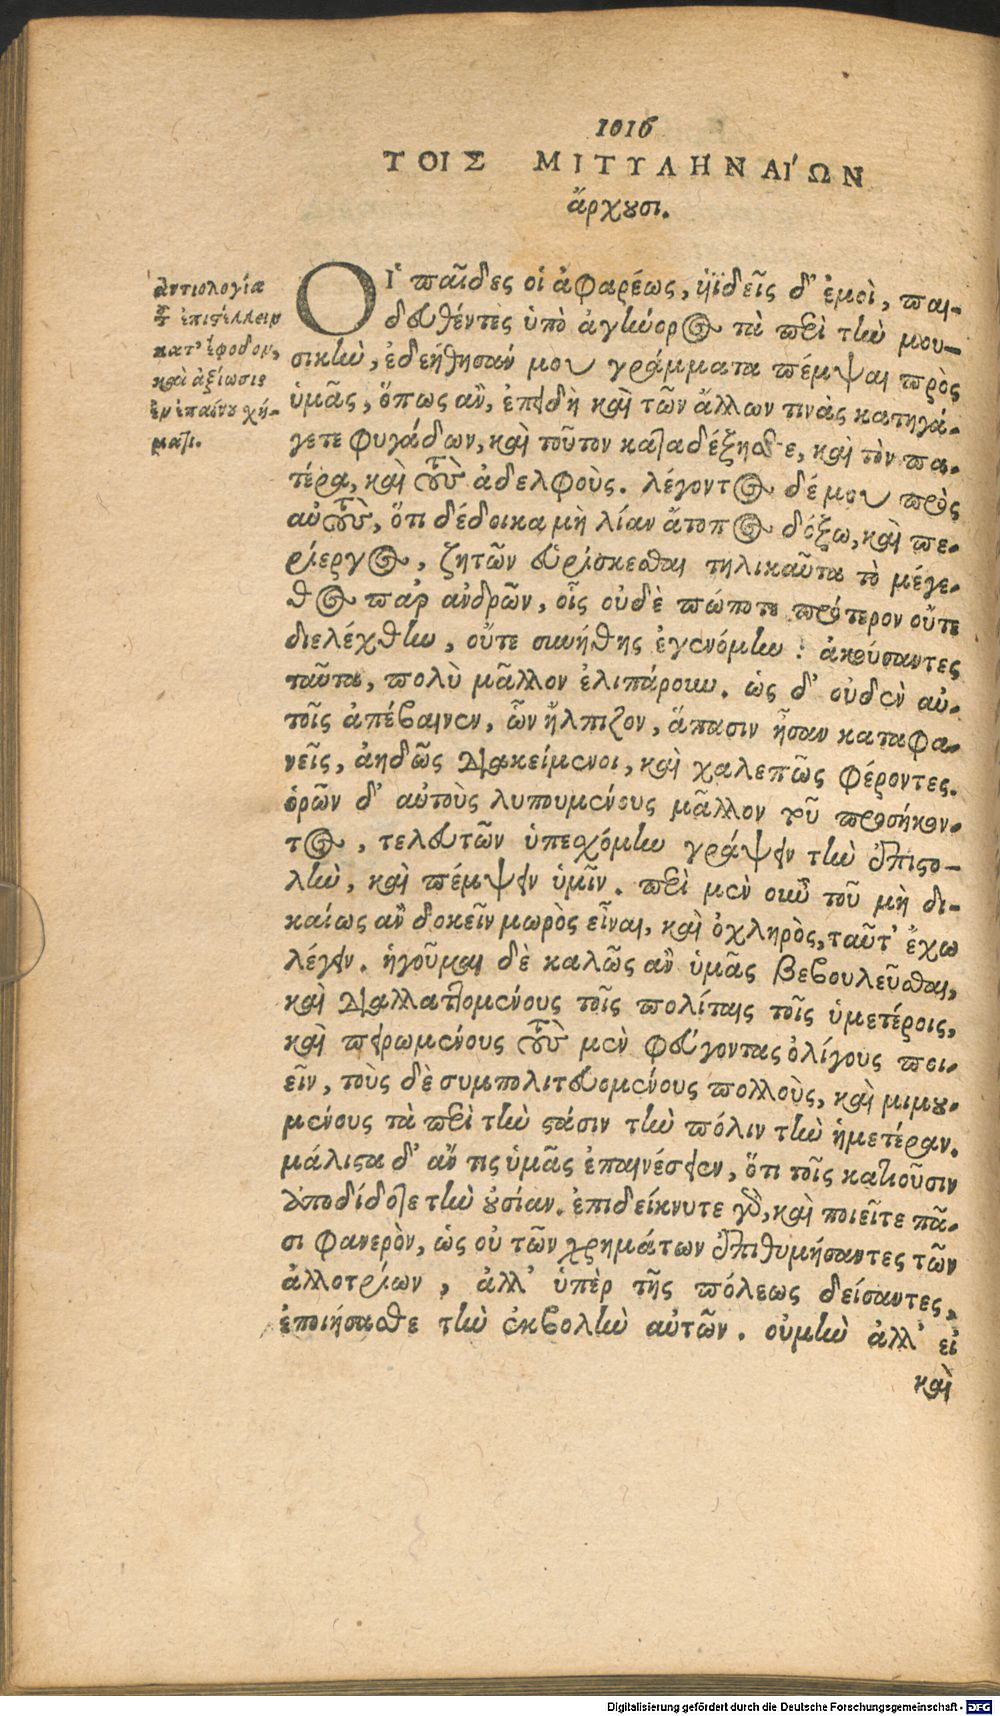 1016
ΤΟΙΣ ΜΙΤΥΛΗΝΑΙ΄ΩΝ
ἄρχουσι.
ἀντιολογία
τοῦ ἐπιστέλλειν
κατ' ἔφοδον,
καὶ ἀξίωσις
ἐν ἐπαίνου χή-
ματι.
ΟΙ῾ παῖδες οἱ ἀφαρέως, ὑϊδεῖς δ' ἐμοὶ, παι-
δευθέντες ὑπὸ ἀγήνορος τὰ περὶ τὴν μου-
σικὴν, ἐδεήθησάν μου γράμματα πέμψαι πρὸς
ὑμᾶς, ὅπως ἂν, ἐπειδὴ καὶ τῶν ἄλλων τινὰς κατηγά-
γετε φυγάδων, καὶ τοῦτον καταδέξησθε, καὶ τὸν πα-
τέρα, καὶ τοὺς ἀδελφούς. λέγοντος δέ μου πρὸς
αὐτοὺς, ὅτι δέδοικα μὴ λίαν ἄτοπος δόξω, καὶ πε-
ρίεργος, ζητῶν εὑρίσκεσθαι τηλικαῦτα τὸ μέγε-
θος παρ' ἀνδρῶν, οἷς οὐδὲ πώποτε πρότερον οὔτε
διελέχθην, οὔτε συνήθης ἐγενόμην: ἀκούσαντες
ταῦτα, πολὺ μᾶλλον ἐλιπάρουν. ὡς δ' οὐδὲν αὐ-
τοῖς ἀπέβαινεν, ὧν ἤλπιζον, ἅπασιν ἦσαν καταφα-
νεῖς, ἀηδῶς διακείμενοι, καὶ χαλεπῶς φέροντες.
ὁρῶν δ' αὐτοὺς λυπουμένους μᾶλλον τοῦ προσήκον-
τος, τελευτῶν ὑπεχόμην γράψειν τὴν ἐπιστο-
λὴν, καὶ πέμψειν ὑμῖν. περὶ μὲν οὖν τοῦ μὴ δι-
καίως ἂν δοκεῖν μωρὸς εἶναι, καὶ ὀχληρὸς, ταῦτ' ἔχω
λέγειν. ἡγοῦμαι δὲ καλῶς ἂν ὑμᾶς βεβουλεῦσθαι,
καὶ διαλλαττομένους τοῖς πολίταις τοῖς ὑμετέροις,
καὶ πειρωμένους τοὺς μὲν φεύγοντας ὀλίγους ποι-
εῖν, τοὺς δὲ συμπολιτευομένους πολλοὺς, καὶ μιμου-
μένους τὰ περὶ τὴν στάσιν τὴν πόλιν τὴν ἡμετέραν.
μάλιστα δ' ἄν τις ὑμᾶς ἐπαινέσειεν, ὅτι τοῖς κατιοῦσιν
ἀποδίδοτε τὴν οὐσίαν. ἐπιδείκνυτε γὰρ, καὶ ποιεῖτε πᾶ-
σι φανερὸν, ὡς οὐ τῶν χρημάτων ἐπιθυμήσαντες τῶν
ἀλλοτρίων, ἀλλ' ὑπὲρ τῆς πόλεως δείσαντες,
ἐποιήσασθε τὴν ἐκβολὴν αὐτῶν. οὐμὴν ἀλλ' εἰ
καὶ
Digitalisierung gefördert durch die Deutsche Forschungsgemeinschaft - DFG